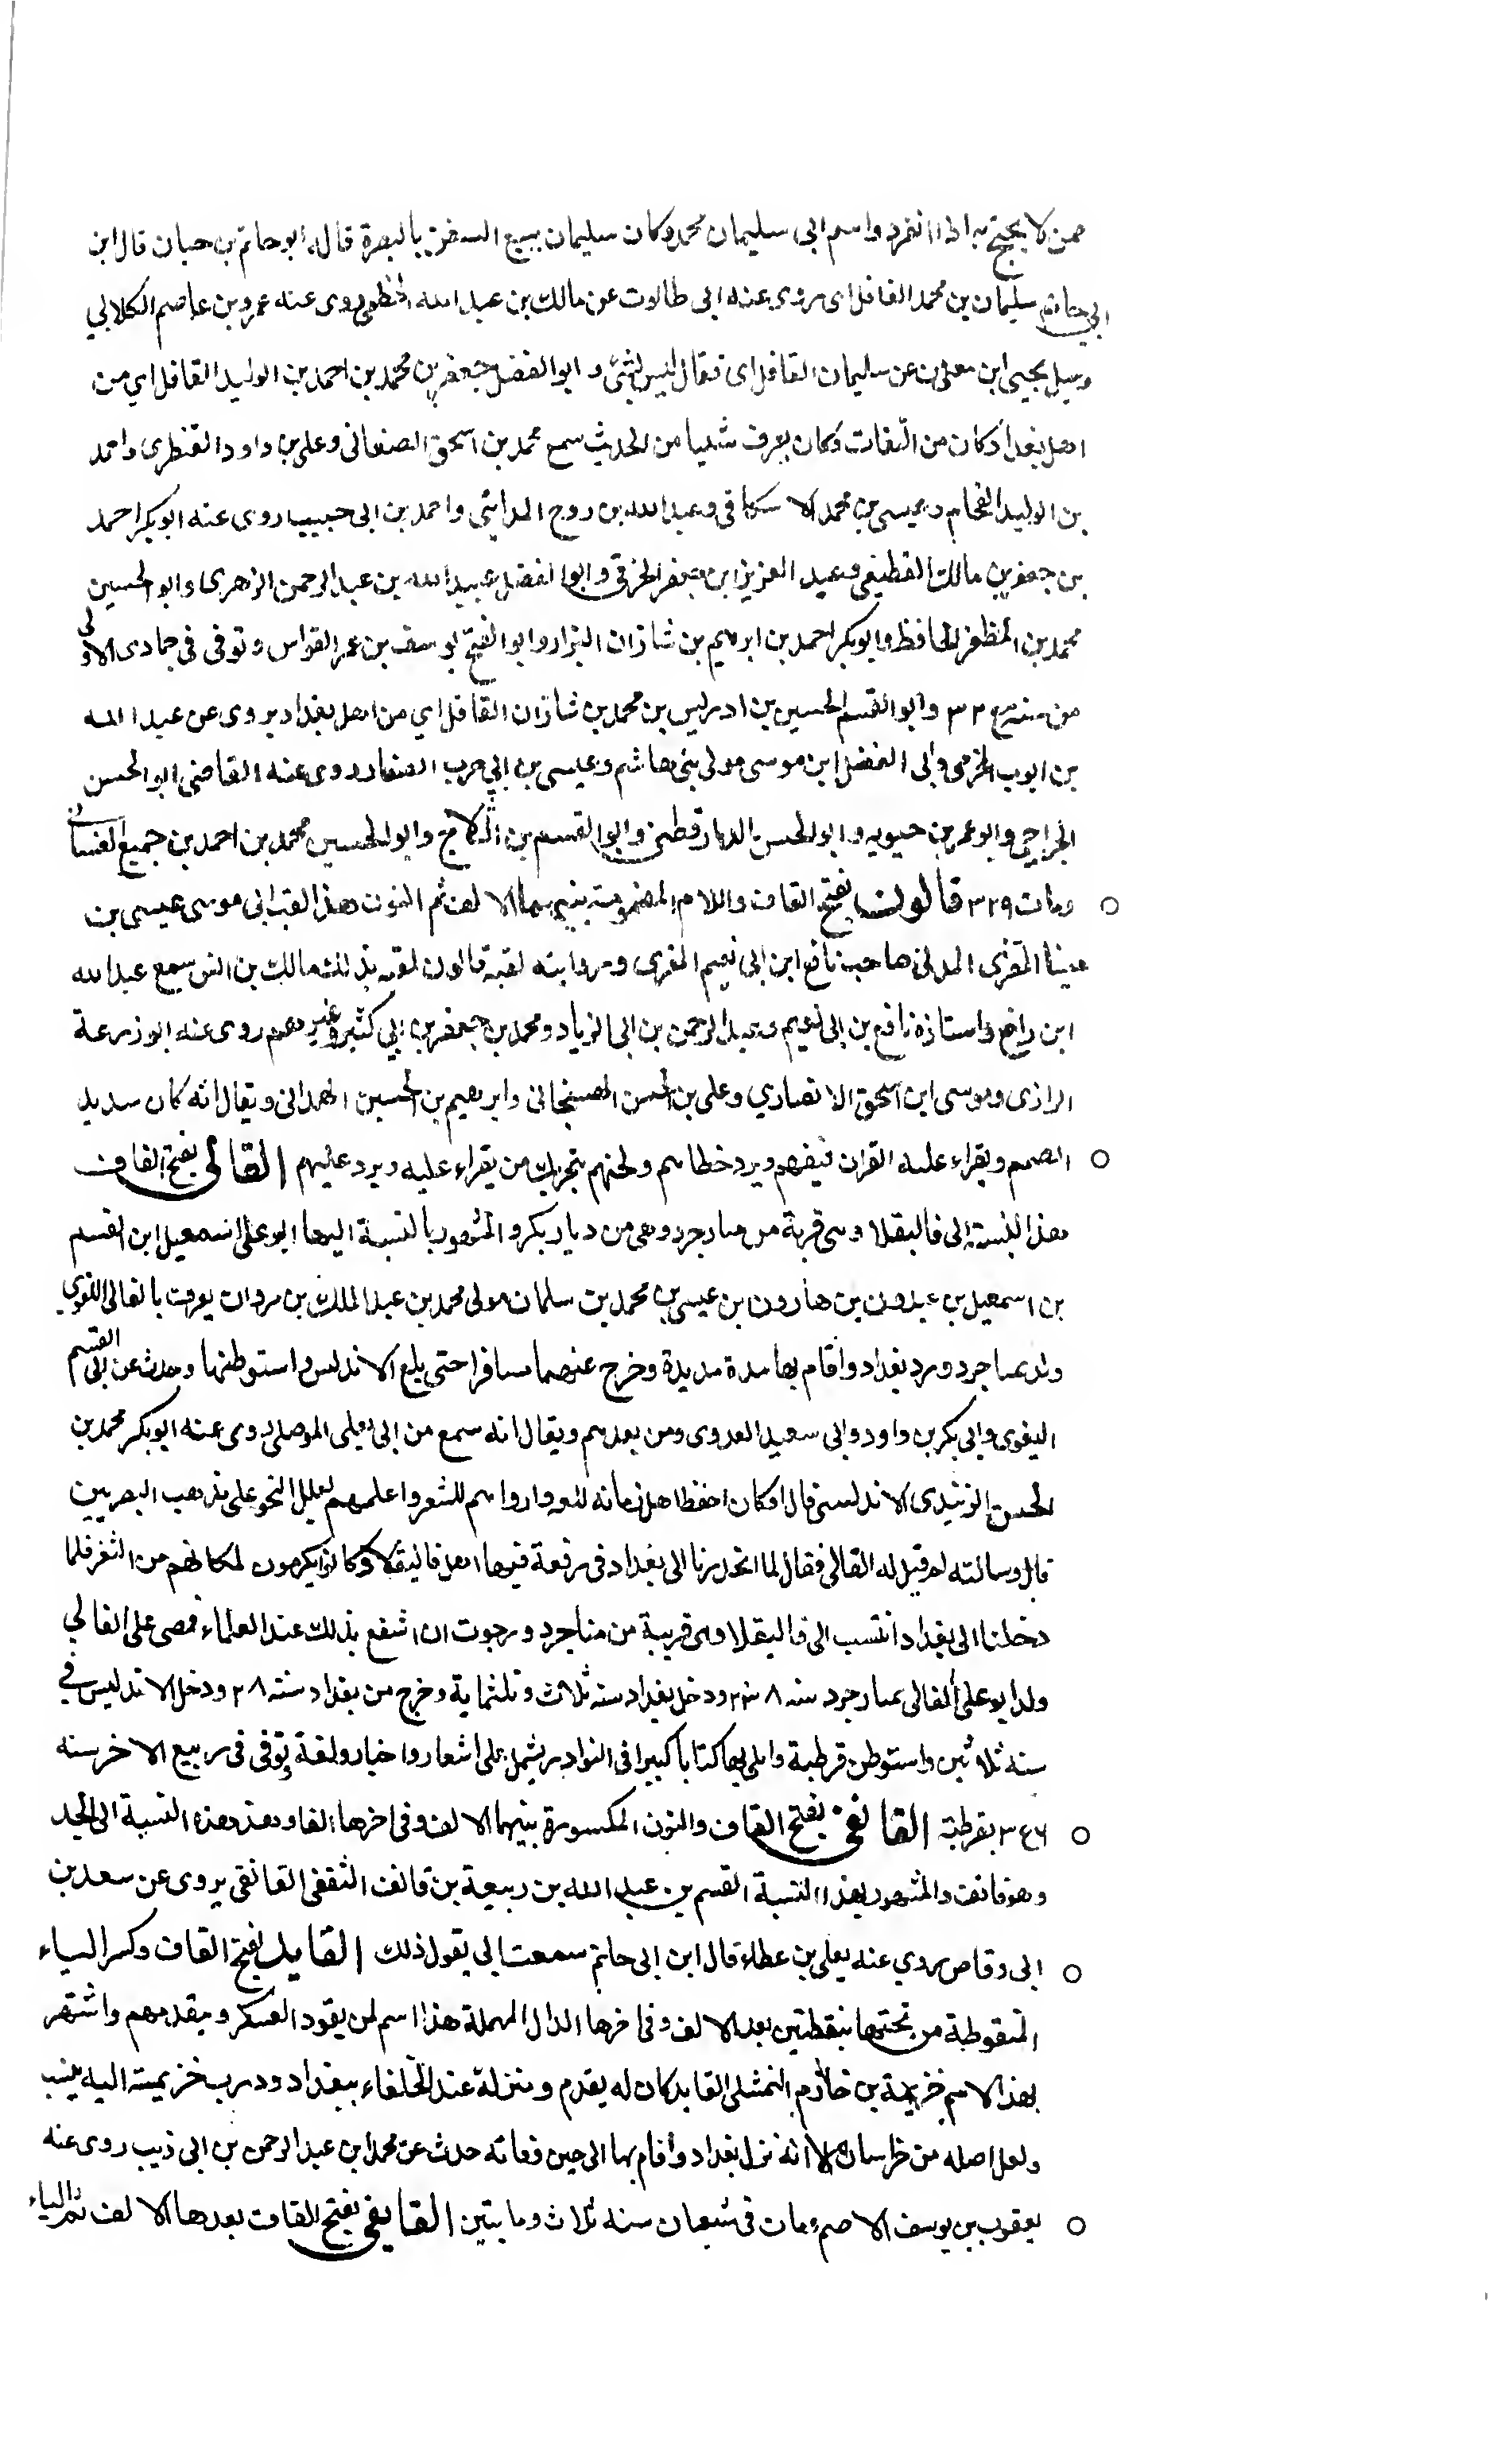 ممن لا يحتج به اذا انفرد واسم ابى سليمان محمد وكان سليمان يبيع السفن بالبصرة قاله ابو حاتم بن حبان قال ابن
ابي حاتم سليمان بن محمد القافلاى روى عنه ابى طالوت عن مالك بن عبد الله روى عنه عمرو بن عاصم الكلابي
وسيل يحيى ابن معين عن سليمان القافلاى فقال ليس بشئ و ابو الفضل جعفر بن محمد بن احمد بن الوليد القافلاي من
اهل بغداد كان من الثقات وكان يعرف شيئا من الحديث سمع محمد بن اسحق الصنعانى وعلى بن داود القنطرى واحمد
بن الوليد الفحام وعيسى بن محمد الاسكافى وعبد الله بن روح المدايني واحمد بن ابى حبيب روى عنه ابو بكر احمد
بن جعفر بن مالك القطيعى وعبد العزيز ابن جعفر الخرقى وابو الفضل عبيد الله بن عبد الرحمن الزهرى وابو الحسين
محمد بن المظفر الحافظ وابو بكر احمد بن ابرهيم بن شاذان البزار وابو الفتح يوسف بن عمر القواس وتوفى فى جمادى الاولى
من سنة ٣٢ وابو القسم الحسين بن ادريس بن محمد بن شاذان القافلاي من اهل بغداد يروى عن عبد الله
بن ايوب المخرمى وابى الفضل ابن موسى مولى بنى هاشم وعيسى بن ابي حرب الصفار روى عنه القاضى ابو الحسن
الجراحي وابو عمر بن حيويه وابو الحسن الدارقطنى وابو القسم بن الثلاج وابو الحسين محمد بن احمد بن جميع الغسانى
ومات ٣٢٩ قالون بفتح القاف واللام المضمومة بينهما الالف ثم النون هذا لقب ابى موسى عيسى بن
مينا المقرى المدنى صاحب نافع ابن ابى نعيم المقرى لقبه قالون لقبه بذلك مالك بن انس سمع عبد الله
ابن رافع واستاذه نافع بن ابى نعيم وعبد الرحمن بن ابى الزياد ومحمد بن جعفر بن ابي كثير وغيرهم روى عنه ابو زرعة
الرازى وموسى ابن اسحق الانصاري وعلى بن الحسن الهسنجانى وابرهيم بن الحسين الهمدانى ويقال انه كان سديد
الصمم ويقراء عليه القران فيفهم ويرد خطاهم ولحنهم بتحريك من يقراء عليه ويرد عليهم القالى بفتح القاف
هذا النسبة الى قاليقلا وهى قرية من منارجرد وهى من ديار بكر والمشهور بالنسبة اليها ابو على اسمعيل ابن القسم
بن اسمعيل بن عيدون بن هارون بن عيسى بن محمد بن سلمان مولى محمد بن عبد الملك بن مروان يعرف بالقالى اللغوي
ولد بمناجرد وورد بغداد واقام بها مدة مديدة وخرج عنها مسافرا حتى بلغ الاندلس واستوطنها وحدث عن ابى القسم
البغوى وابي بكر بن داود وابى سعيد العدوى ومن بعدهم ويقال انه سمع من ابى يعلى الموصلى روى عنه ابو بكر محمد بن
الحسن الزبيدى الاندلسى قال وكان احفظ اهل زمانه للغه وارواهم للشعر واعلمهم لعلل النحو على مذهب البصريين
قال وسالته لم قيل له القالى فقال لما انحدرنا الى بغداد فى رفعة فيها اهل قاليقلا وكانوا يكرمون لمكانهم من الثغر فلما
دخلنا الى بغداد انتسب الى قاليقلا وهى قريبة من مناجرد ورجوت ان انتفع بذلك عند العلماء فمضى على القالي
ولد ابو على القالى بمنارجرد سنه ٢٨٨ ودخل بغداد سنه ثلاث وثلثماية وخرج من بغداد سنه ٢٨ ودخل الاندلس في
سنه ثلاثين واستوطن قرطبة واملى بها كتابا كبيرا فى النوادر يشمل على اشعار واخبار ولغة توفى فى ربيع الاخر سنه
٣٤٦ بقرطبة القانفى بفتح القاف والنون المكسورة بينهما الالف وفى اخرها الفا وهذه النسبة الى الجد
وهو قانف والمشهور بهذا النسبة القسم بن عبد الله بن ربيعة بن قانف الثقفى القانفى يروى عن سعد بن
ابى وقاص روي عنه يعلى بن عطاء قال ابن ابى حاتم سمعت ابى يقول ذلك القايد بفتح القاف وكسر الياء
المنقوطة من تحتها بنقطتين بعد الالف وفى اخرها الدال المهملة هذا اسم لمن يقود العسكر ويقدمهم واشتهر
بهذا الاسم خزيمة بن خازم النهشلى القايد كان له يقدم ومنزلة عند الخلفاء ببغداد ودرب خزيمة اليه ينسب
ولعل اصله من خراسان الا انه نزل بغداد واقام بها الى حين وفاته حدث عن محمد ابن عبد الرحمن بن ابى ذيب روى عنه
يعقوب بن يوسف الاصم ومات فى شعبان سنه ثلاث ومايتين القايفى بفتح القاف بعدها الالف ثم الياء